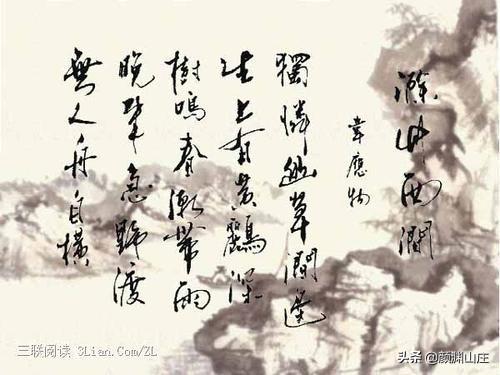 滁州西澗
韋應物
獨憐幽草澗邊
生上有黃鸝深
樹鳴春潮帶雨
晚來急野渡
無人舟自橫
三联阅读 3Lian.Com/ZL
头条 @颜渊山庄